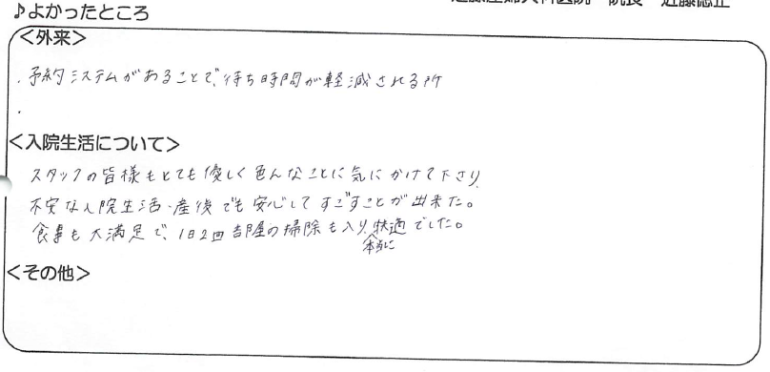 ♪よかったところ
<外来>
・予約システムがあることで、待ち時間が軽減される所
・
<入院生活について>
スタッフの皆様もとても優しく色んなことに気にかけて下さり、
不安な入院生活・産後でも安心してすごすことが出来た。
食事も大満足で、1日2回お部屋の掃除も入り、本当に快適でした。
<その他>